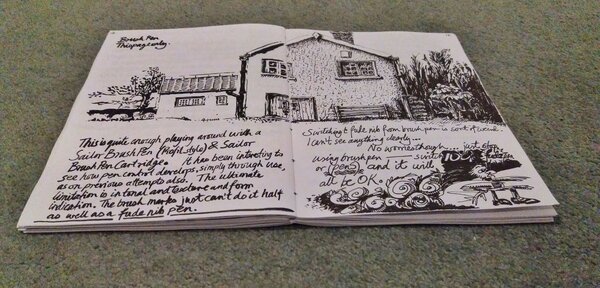 Brush Pen
This page only.
This is quite enough playing around with a
Sailor Brush Pen (Profit style) & Sailor
Brush Pen Cartridge. It has been interesting to
see how pen control develops, simply through use,
as on previous attempts did. The ultimate
limitation is in tonal and texture and form
indication. The brush marks just can't do it half
as well as a fude nib pen.
Switching to fude nib from brush pen is sort of weird
I can't see anything clearly...
No worries though... just stop
using brush pen
or (pens) and it will
all be O.K.